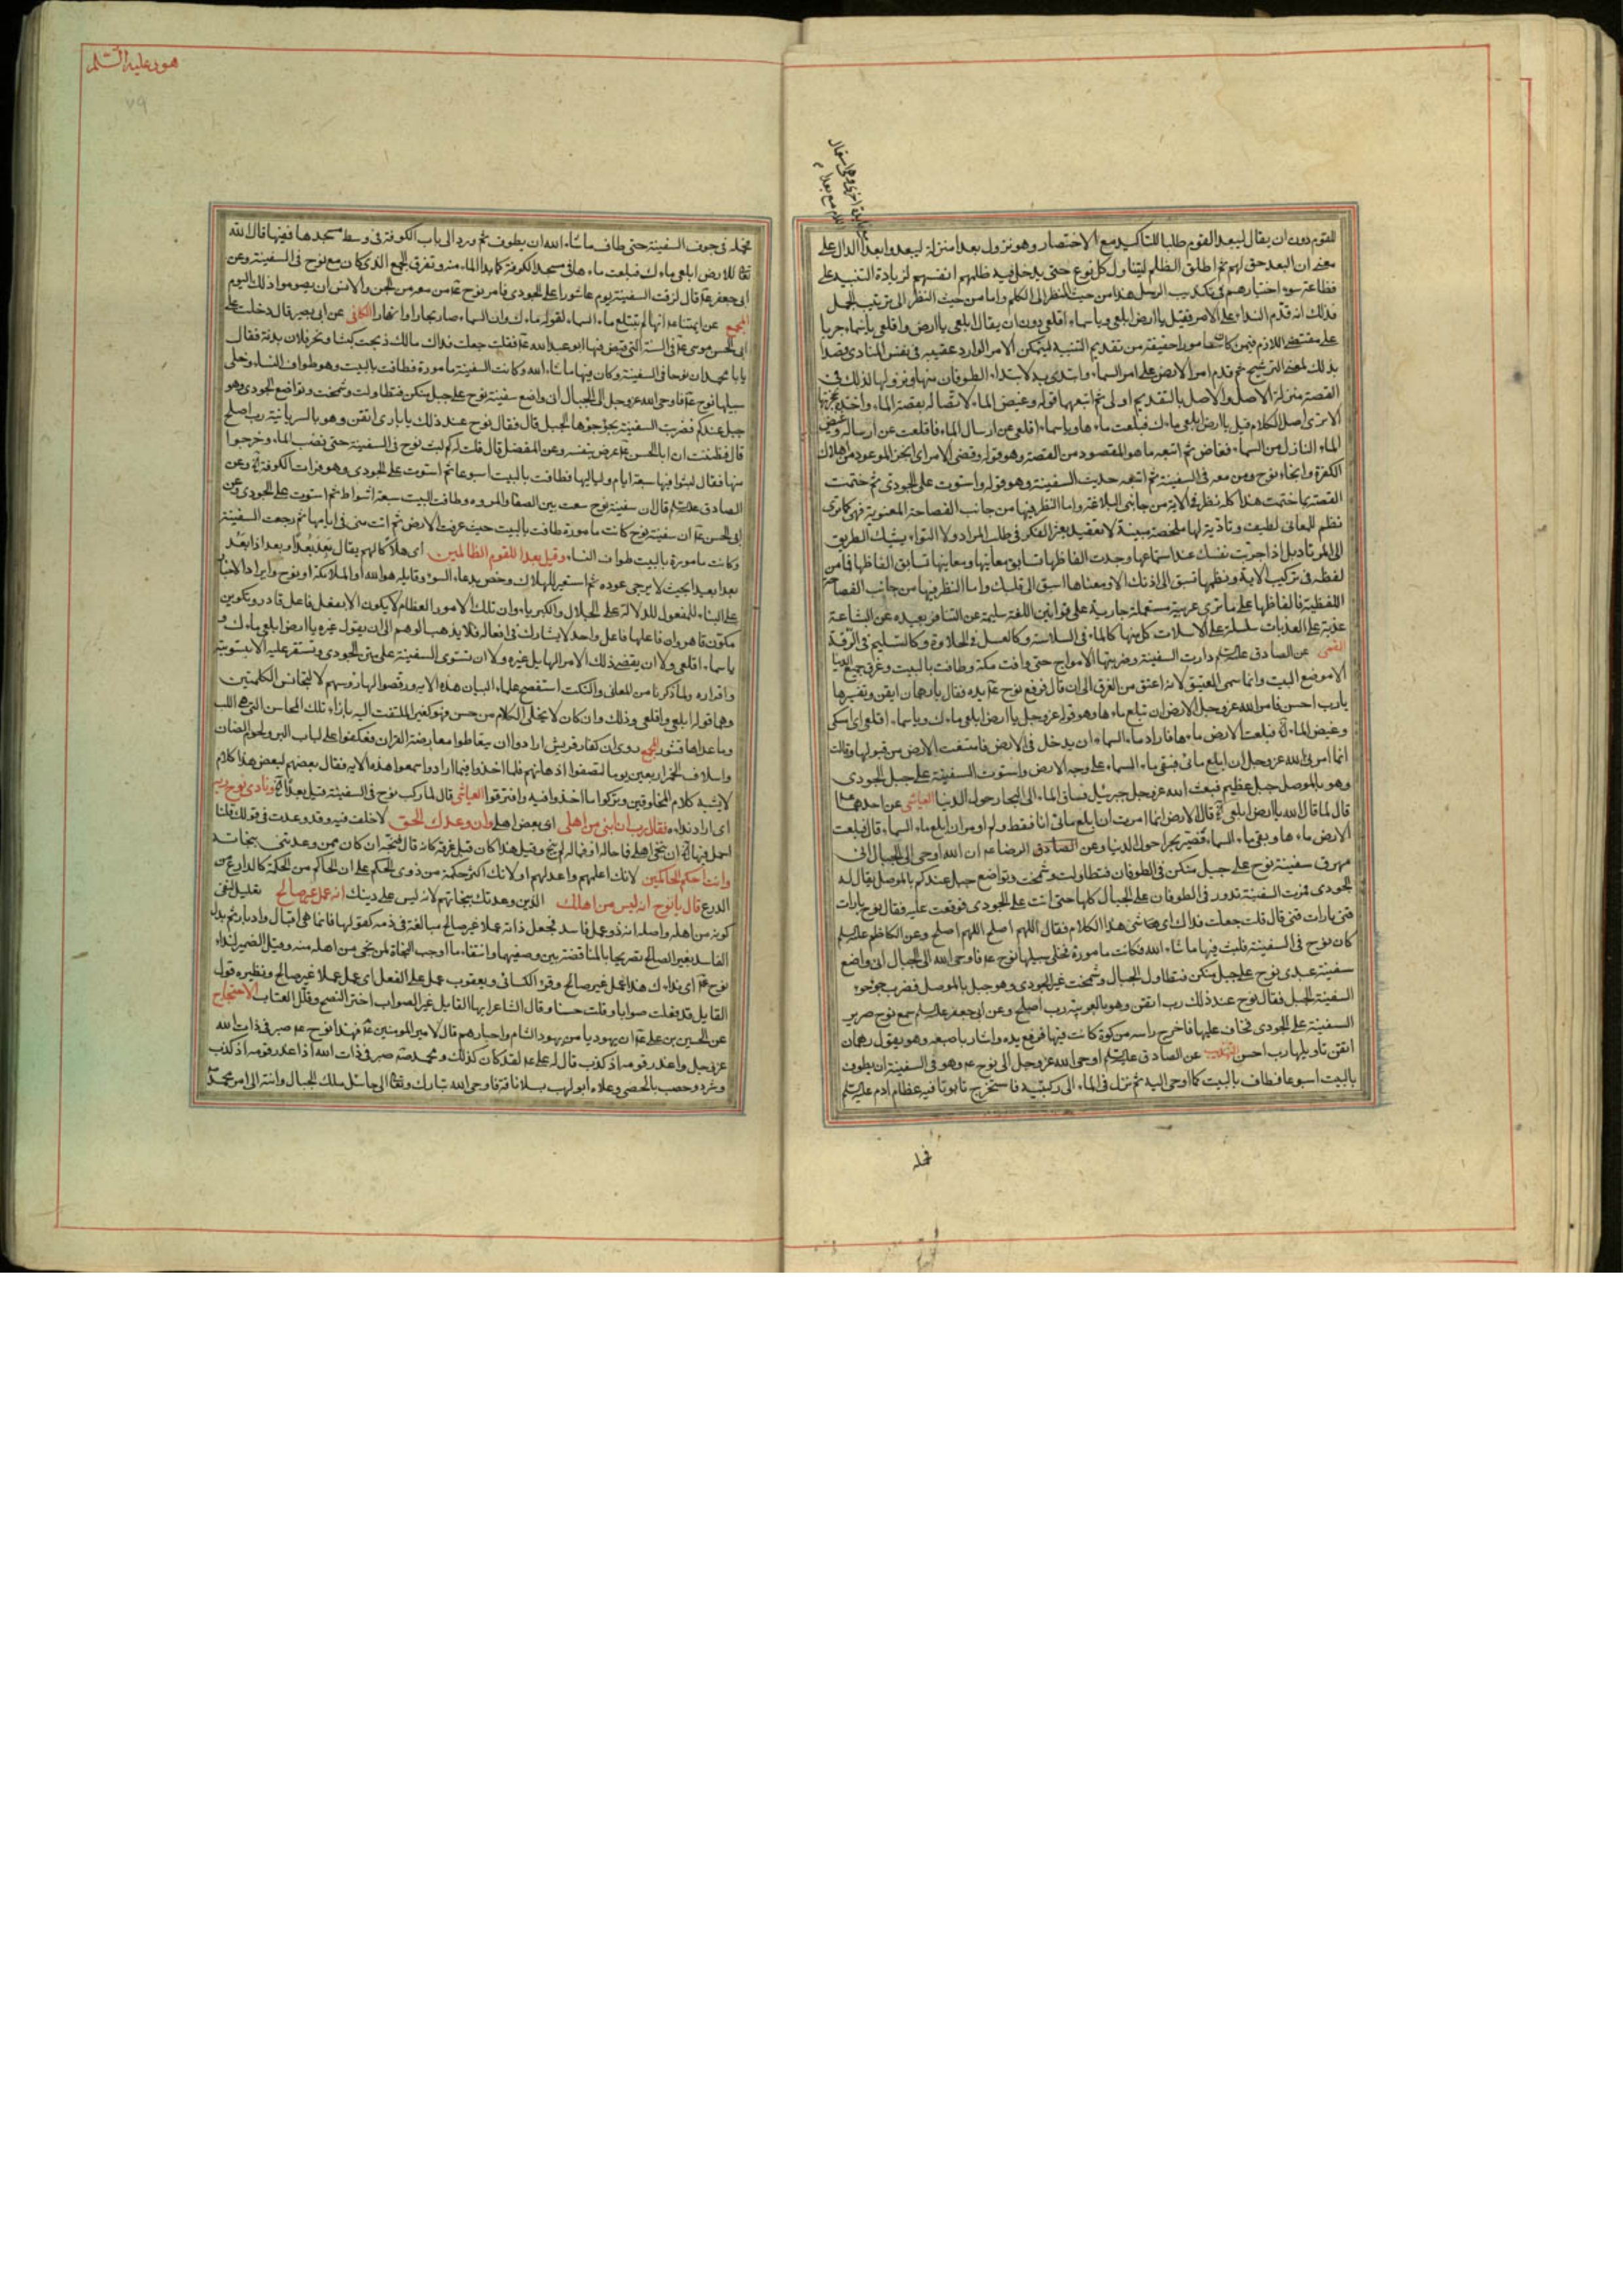 للقوم دون ان يقال ليبعد القوم طلبا للتاكيد مع الاختصار وهو نزول بعدا منزلة ليبعدوا بعدا الدال على
معنى ان البعد حق لهم ثم اطلق الظلم ليتناول كل نوع حتى يدخل فيه ظلمهم انفسهم لزيادة التنبيه على
فظاعة سوء اختيارهم فى تكذيب الرسل هذا من حيث النظر الى الكلم واما من حيث النظر الى ترتيب الجمل
فذلك انه قدم النداء على الامر فقيل ياارض ابلعى وياسماء اقلعى دون ان يقال ابلعى ياارض واقلعى ياسماء جريا
على مقتضى اللازم فيمن كان مامورا حقيقة من تقديم التنبيه ليتمكن الامر الوارد عقيبه فى نفس المنادى قصدا
بذلك لمعنى الترشيح ثم قدم امر الارض على امر السماء وابتدى به لابتداء الطوفان منها ونزولها لذلك فى
القصة منزلة الاصل والاصل بالتقديم اولى ثم اتبعها قوله وغيض الماء لاتصاله بقصة الماء
الا ترى اصل الكلام قيل ياارض ابلعى ماءك فبلعت ماءها وياسماء اقلعى عن ارسال الماء فاقلعت عن ارساله وغيض
الماء النازل من السماء فغاض ثم اتبعه ما هو المقصود من القصة وهو قوله وقضى الامر اى انجز الموعود من اهلاك
الكفرة وانجاء نوح ومن معه فى السفينة ثم اتبعه حديث السفينة وهو قوله واستوت على الجودى ثم ختمت
القصة بما ختمت هذا كله نظر فى الاية من جانبى البلاغة واما النظر فيها من جانب الفصاحة المعنوية فهى كما ترى
نظم للمعانى لطيف وتادية لها ملخصة مبينة لا تعقيد يعثر الفكر فى طلب المراد ولا التواء يشيك الطريق
الى المرتاد بل اذا جربت نفسك عند استماعها وجدت الفاظها تسابق معانيها ومعانيها تسابق الفاظها فما من
لفظة فى تركيب الاية ونظمها تسبق الى اذنك الا ومعناها اسبق الى قلبك واما النظر فيها من جانب الفصاحة
اللفظية فالفاظها على ما ترى عربية مستعملة جارية على قوانين اللغة سليمة عن التنافر بعيدة عن البشاعة
عذبة على العذبات سلسلة على الاسلات كل منها كالماء فى السلاسة وكالعسل فى الحلاوة وكالنسيم فى الرقة
القمى عن الصادق عليه السلم دارت السفينة وضربتها الامواج حتى وافت مكة وطافت بالبيت وغرق جميع الدنيا
الا موضع البيت وانما سمى العتيق لانه اعتق من الغرق الى ان قال فرفع نوح يده فقال يارهمان ايقن وتفسيرها
يارب احسن فامر الله عز وجل الارض ان تبلع ماءها وهو قوله عز وجل ياارض ابلعى ماءك وياسماء اقلعى اى امسكى
وغيض الماء فبلعت الارض ماءها فاراد ماء السماء ان يدخل فى الارض فامتنعت الارض من قبولها وقالت
انما امرنى الله عز وجل ان ابلع مائى فبقى ماء السماء على وجه الارض واستوت السفينة على جبل الجودى
وهو بالموصل جبل عظيم فبعث الله عز وجل جبرئيل فساق الماء الى البحار حول الدنيا العياشى عن احدهما
قال لما قال الله ياارض ابلعى قال الارض انما امرت ان ابلع مائى انا فقط ولم اومر ان ابلع ماء السماء قال فبلعت
الارض ماءها وبقى ماء السماء فصير بحرا حول الدنيا وعن الرضا ان الله اوحى الى الجبال انى
مهرق سفينة نوح على جبل منكن فى الطوفان فتطاولت وشمخت وتواضع جبل عندكم بالموصل يقال له
الجودى فمرت السفينة تدور فى الطوفان على الجبال كلها حتى انت على الجودى فوقعت عليه فقال نوح بارات
قنى بارات قنى قال قلت جعلت فداك اى شى هذا الكلام فقال اللهم اصلح اللهم اصلح وعن الكاظم عليه السلم
كان نوح فى السفينة فلبث فيها ما شاء الله فكانت مامورة فخلى سبيلها نوح فاوحى الله الى الجبال انى واضع
سفينة عبدى نوح على جبل منكن فتطاول الجبال وشمخت غير الجودى وهو جبل بالموصل فضرب جوجوء
السفينة الجبل فقال نوح عند ذلك رب اتقن وهو بالعربية رب اصلح وعن ابى جعفر عليه السلم سمع نوح صرير
السفينة على الجودى فخاف عليها فاخرج راسه من كوة كانت فيها فرفع يده واشار باصبعه وهو يقول رهمان
اتقن تاويلها رب احسن التهذيب عن الصادق عليه السلم اوحى الله عز وجل الى نوح وهو فى السفينة ان يطوف
بالبيت اسبوعا فطاف بالبيت كما اوحى اليه ثم نزل فى الماء الى ركبتيه فاستخرج تابوتا فيه عظام ادم عليه السلم
فحمله
هود عليه السلم
٧٩
فحمله فى جوف السفينة حتى طاف ما شاء الله ان يطوف ثم ورد الى باب الكوفة فى وسط مسجدها ففيها قال الله
تعالى للارض ابلعى ماءك فبلعت ماءها فى مسجد الكوفة كما بدا الماء منه وتفرق الجمع الذى كان مع نوح فى السفينة وعن
ابى جعفر قال لزقت السفينة يوم عاشورا على الجودى فامر نوح من معه من الجن والانس ان يصوموا ذلك اليوم
المجمع عن ائمتنا انها لم تبتلع ماء السماء لقوله ماءك وان السماء صار بحارا وانهارا الكافى عن ابى بصير قال دخلت على
ابى الحسن موسى فى السنة التى قبض فيها ابو عبد الله فقلت جعلت فداك مالك ذبحت كبشا ونحر فلان بدنة فقال
يابا محمد ان نوحا فى السفينة وكان فيها ما شاء الله وكانت السفينة مامورة فطافت بالبيت وهو طواف النساء وخلى
سبيلها نوح فاوحى الله عز وجل الى الجبال انى واضع سفينة نوح على جبل منكن فتطاولت وشمخت وتواضع الجودى وهو
جبل عندكم فضربت السفينة بجؤجؤها الجبل قال فقال نوح عند ذلك يا بارى اتقن وهو بالسريانية رب اصلح
قال فظننت ان ابا الحسن عرض بنفسه وعن المفضل قال قلت له كم لبث نوح فى السفينة حتى نضب الماء وخرجوا
منها فقال لبثوا فيها سبعة ايام ولياليها فطافت بالبيت اسبوعا ثم استوت على الجودى وهو فرات الكوفة وعن
الصادق عليه السلم قال ان سفينة نوح سعت بين الصفا والمروه وطافت البيت سبعة اشواط ثم استوت على الجودى وعن
ابى الحسن ان سفينة نوح كانت مامورة طافت بالبيت حيث غرقت الارض ثم اتت منى فى ايامها ثم رجعت السفينة
وكانت مامورة بالبيت طواف النساء وقيل بعدا للقوم الظالمين اى هلاكا لهم يقال بعد بعدا وبعدا اذا بعد
بعدا بعيدا بحيث لا يرجى عوده ثم استعير للهلاك وخص بدعاء السوء وقايله هو الله او الملائكة او نوح وايراد الاخبار
على البناء للمفعول للدلالة على الجلال والكبرياء وان تلك الامور العظام لا يكون الا بفعل فاعل قادر وتكوين
مكون قاهر وان فاعلها فاعل واحد لا يشارك فى افعاله فلا يذهب الوهم الى ان يقول غيره ياارض ابلعى ماءك و
ياسماء اقلعى ولا ان يقضى ذلك الامر الهايل غيره ولا ان تستوى السفينة على متن الجودى وتستقر عليه الا بتسويته
واقراره ولما ذكرنا من المعانى والنكت استفصح علماء البيان هذه الايه ورقصوا لها رؤسهم لا لتجانس الكلمتين
وهما قوله ابلعى واقلعى وذلك وان كان لا يخلى الكلام من حسن فهو كغير الملتفت اليه بازاء تلك المحاسن التى هى اللب
وما عداها قشور المجمع روى ان كفار قريش ارادوا ان يتعاطوا معارضة القران فعكفوا على لباب البر ولحوم الضان
واسلاف الخمر اربعين يوما لتصفوا اذهانهم فلما اخذوا فيما ارادوا سمعوا هذه الايه فقال بعضهم لبعض هذا كلام
لا يشبه كلام المخلوقين وتركوا ما اخذوا فيه وافترقوا العياشى قال لما ركب نوح فى السفينة قيل بعدا ونادى نوح ربه
اى اراد نداءه فقال رب ان ابنى من اهلى اى بعض اهلى وان وعدك الحق لا خلف فيه وقد وعدت فى قولك قلنا
احمل فيها ان تنجى اهلى فما حاله او فما له لم ينج وقيل هذا كان قبل غرقه كانه قال فنجه ان كان ممن وعدتنى بنجاته
وانت احكم الحاكمين لانك اعلمهم واعدلهم او لانك اكثر حكمة من ذوى الحكم على ان الحاكم من الحكمة كالدارع من
الدرع قال يانوح انه ليس من اهلك الذين وعدتك بنجاتهم لانه ليس على دينك انه عمل غير صالح تعليل لنفى
كونه من اهله واصله انه ذو عمل فاسد فجعل ذاته عملا غير صالح مبالغة فى ذمه كقولها فانما هى اقبال وادبار ثم بدل
الفاسد بغير الصالح تصريحا بالمناقضة بين وصفيهما وانتفاء ما اوجب النجاة لمن نجى من اهله منه وقيل الضمير لنداء
نوح اى نداءك هذا عمل غير صالح وقرء الكسائى ويعقوب عمل على الفعل اى عمل عملا غير صالح ونظيره قول
القايل قد فعلت صوابا وقلت حسنا وقال الشاعر ايها القايل غير الصواب اخر النصح وقلل العتاب الاحتجاج
عن الحسين بن على ان يهوديا من يهود الشام واحبارهم قال لامير المومنين فهذا نوح صبر فى ذات الله
عز وجل واعذر قومه اذ كذب قال له على لقد كان كذلك ومحمد صبر فى ذات الله اذا عذر قومه اذ كذب
وشرد وحصب بالحصى وعلاه ابو لهب بسلا ناقة فاوحى الله تبارك وتعالى الى جائيل ملك الجبال وانته الى امر محمد